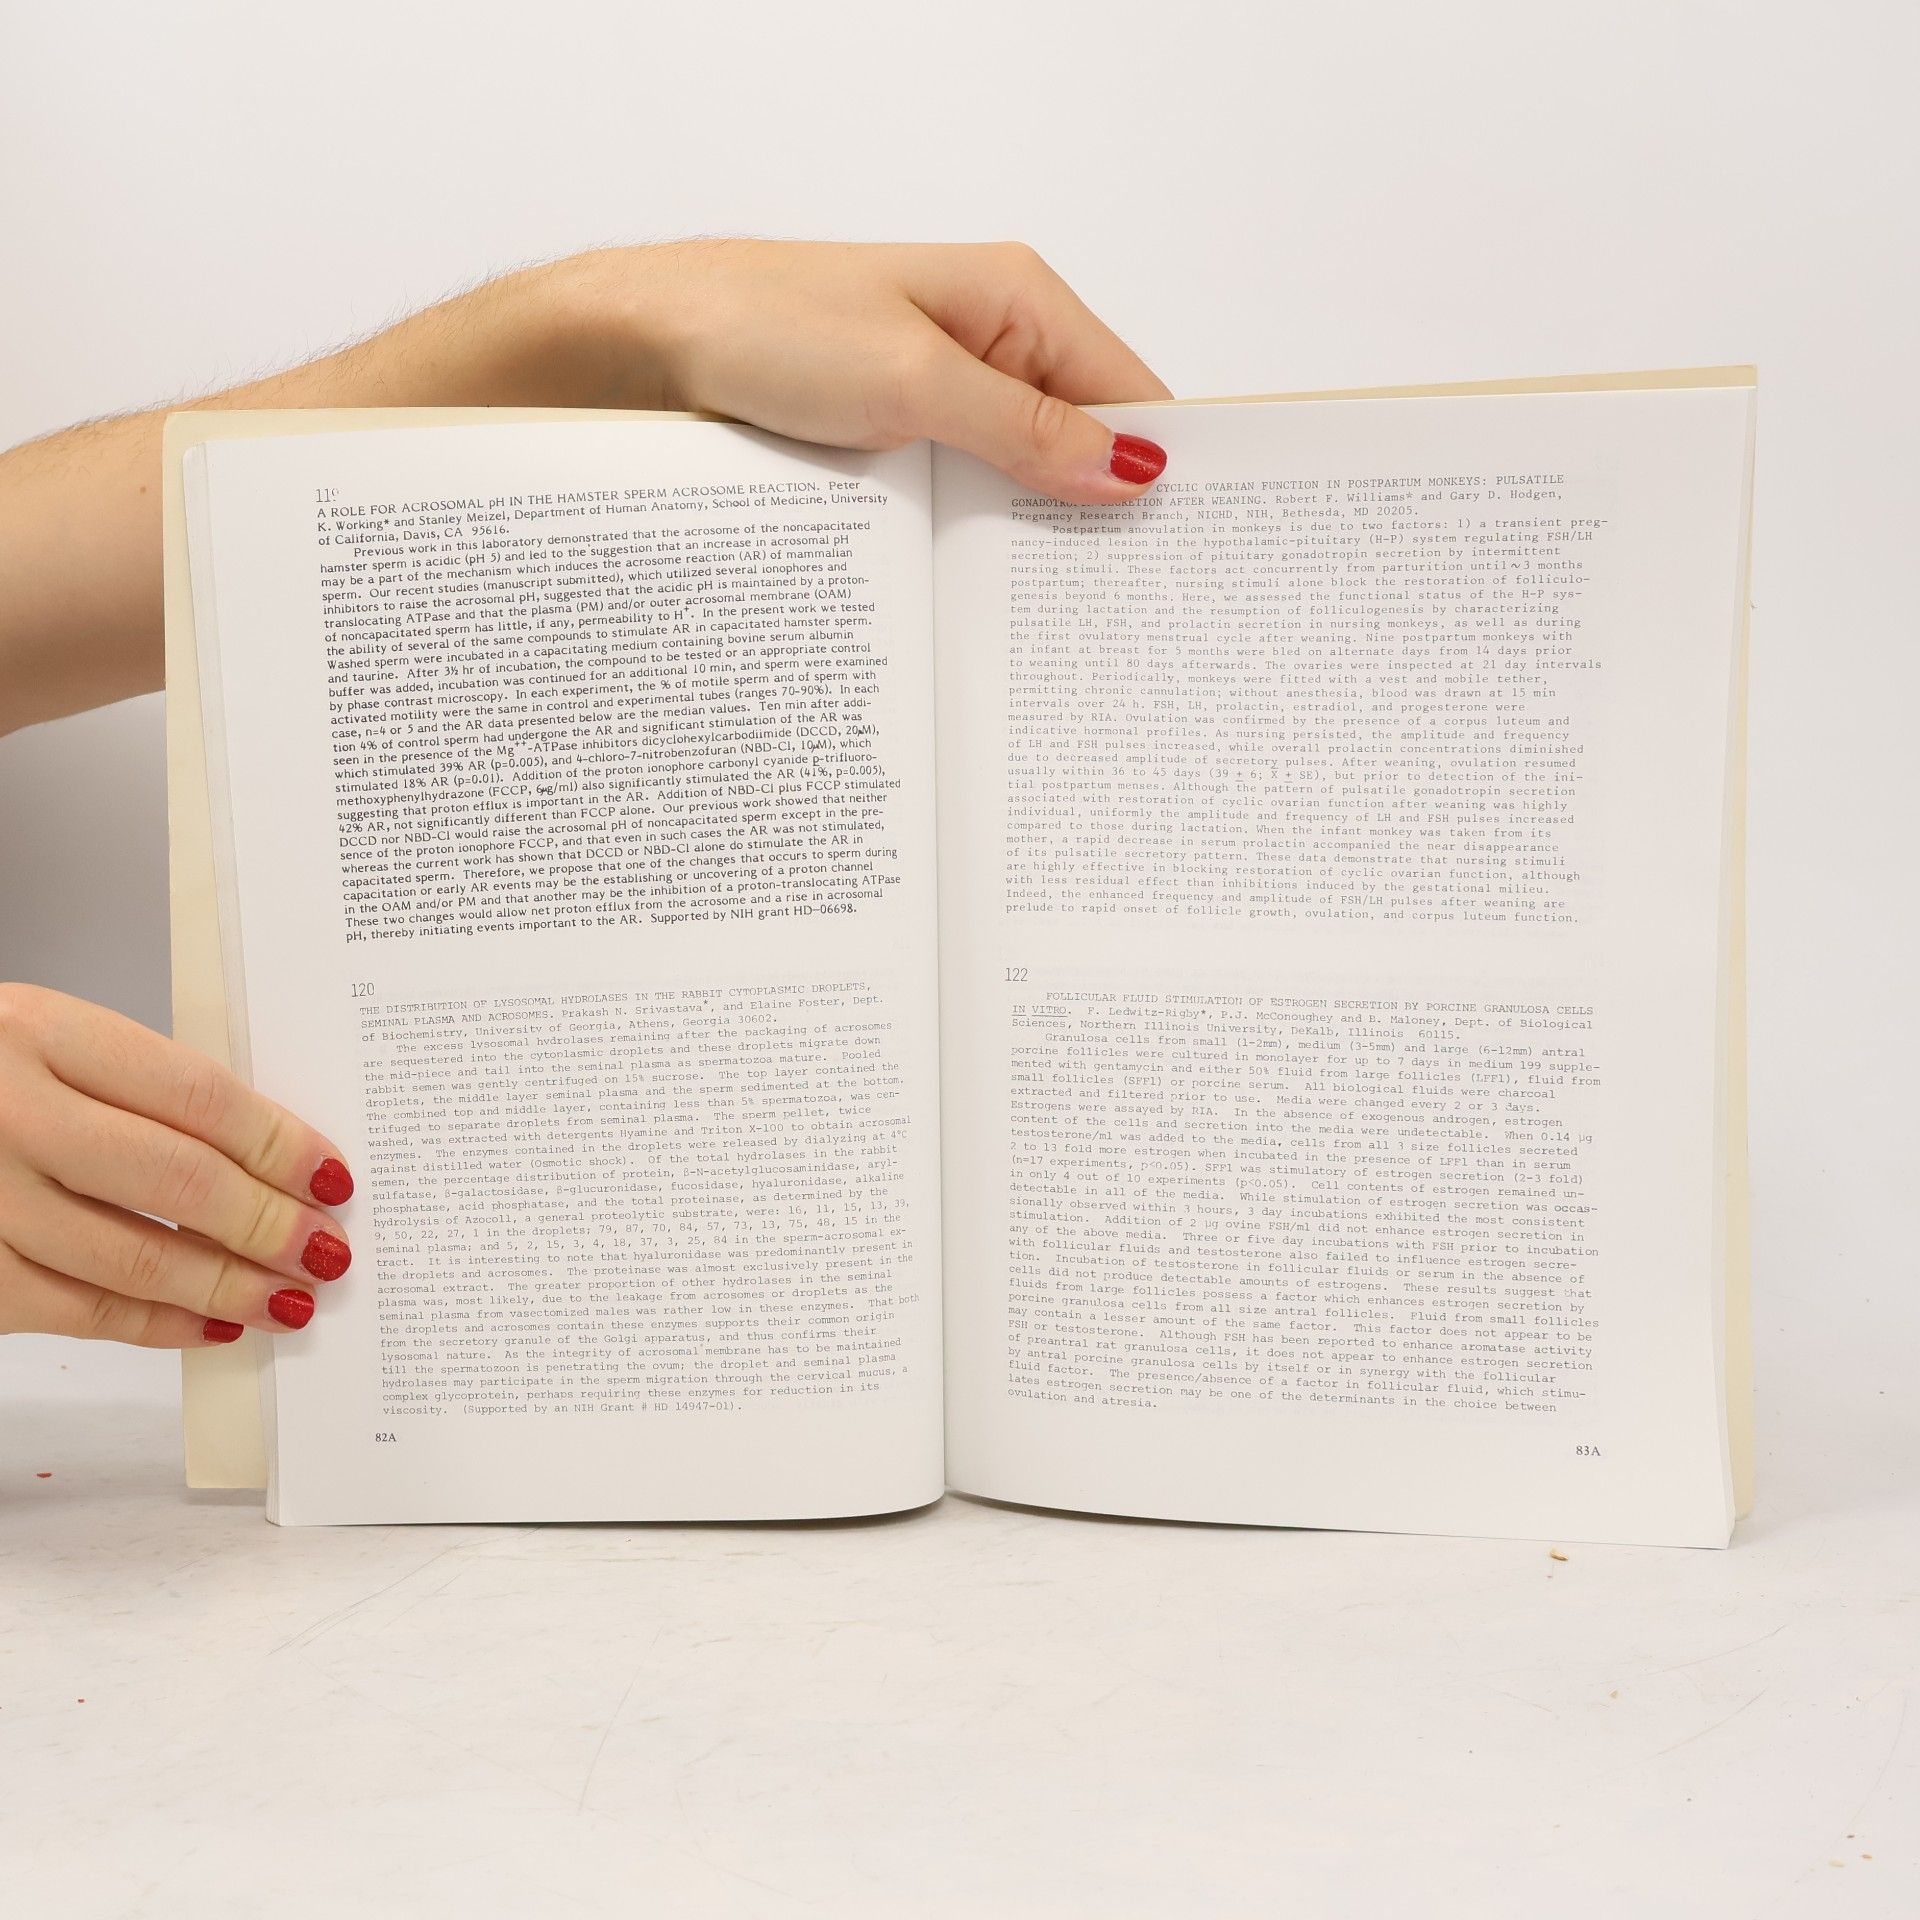 119
A ROLE FOR ACROSOMAL pH IN THE HAMSTER SPERM ACROSOME REACTION. Peter
K. Working* and Stanley Meizel, Department of Human Anatomy, School of Medicine, University
of California, Davis, CA 95616.
Previous work in this laboratory demonstrated that the acrosome of the noncapacitated
hamster sperm is acidic (pH 5) and led to the suggestion that an increase in acrosomal pH
may be a part of the mechanism which induces the acrosome reaction (AR) of mammalian
sperm. Our recent studies (manuscript submitted), which utilized several ionophores and
inhibitors to raise the acrosomal pH, suggested that the acidic pH is maintained by a proton-
translocating ATPase and that the plasma (PM) and/or outer acrosomal membrane (OAM)
of noncapacitated sperm has little, if any, permeability to H+. In the present work we tested
the ability of several of the same compounds to stimulate AR in capacitated hamster sperm.
Washed sperm were incubated in a capacitating medium containing bovine serum albumin
and taurine. After 3½ hr of incubation, the compound to be tested or an appropriate control
buffer was added, incubation was continued for an additional 10 min, and sperm were examined
by phase contrast microscopy. In each experiment, the % of motile sperm and of sperm with
activated motility were the same in control and experimental tubes (ranges 70-90%). In each
case, n=4 or 5 and the AR data presented below are the median values. Ten min after addi-
tion 4% of control sperm had undergone the AR and significant stimulation of the AR was
seen in the presence of the Mg++-ATPase inhibitors dicyclohexylcarbodiimide (DCCD, 20μM),
which stimulated 39% AR (p=0.005), and 4-chloro-7-nitrobenzofuran (NBD-Cl, 10μM), which
stimulated 18% AR (p=0.01). Addition of the proton ionophore carbonyl cyanide p-trifluoro-
methoxyphenylhydrazone (FCCP, 6μg/ml) also significantly stimulated the AR (41%, p=0.005),
suggesting that proton efflux is important in the AR. Addition of NBD-Cl plus FCCP stimulated
42% AR, not significantly different than FCCP alone. Our previous work showed that neither
DCCD nor NBD-Cl would raise the acrosomal pH of noncapacitated sperm except in the pre-
sence of the proton ionophore FCCP, and that even in such cases the AR was not stimulated,
whereas the current work has shown that DCCD or NBD-Cl alone do stimulate the AR in
capacitated sperm. Therefore, we propose that one of the changes that occurs to sperm during
capacitation or early AR events may be the establishing or uncovering of a proton channel
in the OAM and/or PM and that another may be the inhibition of a proton-translocating ATPase
These two changes would allow net proton efflux from the acrosome and a rise in acrosomal
pH, thereby initiating events important to the AR. Supported by NIH grant HD-06698.
120
THE DISTRIBUTION OF LYSOSOMAL HYDROLASES IN THE RABBIT CYTOPLASMIC DROPLETS,
SEMINAL PLASMA AND ACROSOMES. Prakash N. Srivastava*, and Elaine Foster, Dept.
of Biochemistry, University of Georgia, Athens, Georgia 30602.
The excess lysosomal hydrolases remaining after the packaging of acrosomes
are sequestered into the cytoplasmic droplets and these droplets migrate down
the mid-piece and tail into the seminal plasma as spermatozoa mature. Pooled
rabbit semen was gently centrifuged on 15% sucrose. The top layer contained the
droplets, the middle layer seminal plasma and the sperm sedimented at the bottom.
The combined top and middle layer, containing less than 5% spermatozoa, was cen-
trifuged to separate droplets from seminal plasma. The sperm pellet, twice
washed, was extracted with detergents Hyamine and Triton X-100 to obtain acrosomal
enzymes. The enzymes contained in the droplets were released by dialyzing at 4°C
against distilled water (Osmotic shock). Of the total hydrolases in the rabbit
semen, the percentage distribution of protein, β-N-acetylglucosaminidase, aryl-
sulfatase, β-galactosidase, β-glucuronidase, fucosidase, hyaluronidase, alkaline
phosphatase, acid phosphatase, and the total proteinase, as determined by the
hydrolysis of Azocoll, a general proteolytic substrate, were: 16, 11, 15, 13, 39,
9, 50, 22, 27, 1 in the droplets; 79, 87, 70, 84, 57, 73, 13, 75, 48, 15 in the
seminal plasma; and 5, 2, 15, 3, 4, 18, 37, 3, 25, 84 in the sperm-acrosomal ex-
tract. It is interesting to note that hyaluronidase was predominantly present in
the droplets and acrosomes. The proteinase was almost exclusively present in the
acrosomal extract. The greater proportion of other hydrolases in the seminal
plasma was, most likely, due to the leakage from acrosomes or droplets as the
seminal plasma from vasectomized males was rather low in these enzymes. That both
the droplets and acrosomes contain these enzymes supports their common origin
from the secretory granule of the Golgi apparatus, and thus confirms their
lysosomal nature. As the integrity of acrosomal membrane has to be maintained
till the spermatozoon is penetrating the ovum; the droplet and seminal plasma
hydrolases may participate in the sperm migration through the cervical mucus, a
complex glycoprotein, perhaps requiring these enzymes for reduction in its
viscosity. (Supported by an NIH Grant # HD 14947-01).
82A
CYCLIC OVARIAN FUNCTION IN POSTPARTUM MONKEYS: PULSATILE
GONADOTROPIN SECRETION AFTER WEANING. Robert F. Williams* and Gary D. Hodgen,
Pregnancy Research Branch, NICHD, NIH, Bethesda, MD 20205.
Postpartum anovulation in monkeys is due to two factors: 1) a transient preg-
nancy-induced lesion in the hypothalamic-pituitary (H-P) system regulating FSH/LH
secretion; 2) suppression of pituitary gonadotropin secretion by intermittent
nursing stimuli. These factors act concurrently from parturition until ~3 months
postpartum; thereafter, nursing stimuli alone block the restoration of folliculo-
genesis beyond 6 months. Here, we assessed the functional status of the H-P sys-
tem during lactation and the resumption of folliculogenesis by characterizing
pulsatile LH, FSH, and prolactin secretion in nursing monkeys, as well as during
the first ovulatory menstrual cycle after weaning. Nine postpartum monkeys with
an infant at breast for 5 months were bled on alternate days from 14 days prior
to weaning until 80 days afterwards. The ovaries were inspected at 21 day intervals
throughout. Periodically, monkeys were fitted with a vest and mobile tether,
permitting chronic cannulation; without anesthesia, blood was drawn at 15 min
intervals over 24 h. FSH, LH, prolactin, estradiol, and progesterone were
measured by RIA. Ovulation was confirmed by the presence of a corpus luteum and
indicative hormonal profiles. As nursing persisted, the amplitude and frequency
of LH and FSH pulses increased, while overall prolactin concentrations diminished
due to decreased amplitude of secretory pulses. After weaning, ovulation resumed
usually within 36 to 45 days (39 ± 6; X̄ ± SE), but prior to detection of the ini-
tial postpartum menses. Although the pattern of pulsatile gonadotropin secretion
associated with restoration of cyclic ovarian function after weaning was highly
individual, uniformly the amplitude and frequency of LH and FSH pulses increased
compared to those during lactation. When the infant monkey was taken from its
mother, a rapid decrease in serum prolactin accompanied the near disappearance
of its pulsatile secretory pattern. These data demonstrate that nursing stimuli
are highly effective in blocking restoration of cyclic ovarian function, although
with less residual effect than inhibitions induced by the gestational milieu.
Indeed, the enhanced frequency and amplitude of FSH/LH pulses after weaning are
prelude to rapid onset of follicle growth, ovulation, and corpus luteum function.
122
FOLLICULAR FLUID STIMULATION OF ESTROGEN SECRETION BY PORCINE GRANULOSA CELLS
IN VITRO. F. Ledwitz-Rigby*, P.J. McConoughey and E. Maloney, Dept. of Biological
Sciences, Northern Illinois University, DeKalb, Illinois 60115.
Granulosa cells from small (1-2mm), medium (3-5mm) and large (6-12mm) antral
porcine follicles were cultured in monolayer for up to 7 days in medium 199 supple-
mented with gentamycin and either 50% fluid from large follicles (LFFl), fluid from
small follicles (SFFl) or porcine serum. All biological fluids were charcoal
extracted and filtered prior to use. Media were changed every 2 or 3 days.
Estrogens were assayed by RIA. In the absence of exogenous androgen, estrogen
content of the cells and secretion into the media were undetectable. When 0.14 μg
testosterone/ml was added to the media, cells from all 3 size follicles secreted
2 to 13 fold more estrogen when incubated in the presence of LFFl than in serum
(n=17 experiments, p<0.05). SFFl was stimulatory of estrogen secretion (2-3 fold)
in only 4 out of 10 experiments (p<0.05). Cell contents of estrogen remained un-
detectable in all of the media. While stimulation of estrogen secretion was occas-
sionally observed within 3 hours, 3 day incubations exhibited the most consistent
stimulation. Addition of 2 μg ovine FSH/ml did not enhance estrogen secretion in
any of the above media. Three or five day incubations with FSH prior to incubation
with follicular fluids and testosterone also failed to influence estrogen secre-
tion. Incubation of testosterone in follicular fluids or serum in the absence of
cells did not produce detectable amounts of estrogens. These results suggest that
fluids from large follicles possess a factor which enhances estrogen secretion by
porcine granulosa cells from all size antral follicles. Fluid from small follicles
may contain a lesser amount of the same factor. This factor does not appear to be
FSH or testosterone. Although FSH has been reported to enhance aromatase activity
of preantral rat granulosa cells, it does not appear to enhance estrogen secretion
by antral porcine granulosa cells by itself or in synergy with the follicular
fluid factor. The presence/absence of a factor in follicular fluid, which stimu-
lates estrogen secretion may be one of the determinants in the choice between
ovulation and atresia.
83A